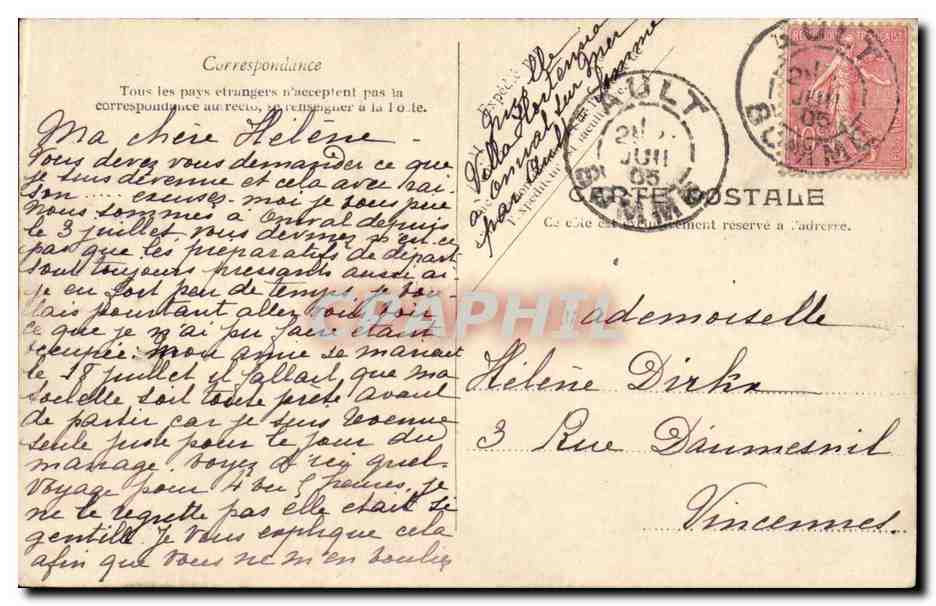 Correspondance
Tous les pays étrangers n'acceptent pas la
correspondance au recto, se renseigner à la Poste.
Ma chère Hélène
Vous devez vous demander ce que
je suis devenue et cela avec rai-
son ...... excusez-moi je vous prie
nous sommes à Onival depuis
le 3 juillet vous devinez n'en ce
pas que les préparatifs de départ
sont toujours pressants aussi ai-
je eu fort peu de temps, je vou-
lais pourtant allez vous voir
ce que je n'ai pu faire étant
occupée. Mon amie se mariait
le 18 juillet il fallait que ma
toilette soit toute prête avant
de partir car je suis revenue
seule juste pour le jour du
mariage. voyez d'ici quel
voyage pour 4 ou 5 heures, je
ne le regrette pas elle était si
gentille. Je vous explique cela
afin que vous ne m'en vouliez
Villa Hortensia
à Onival sur mer
par Ault Somme
AULT
JUIL
05
SOMME
AULT
JUIL
05
SOMME
REPUBLIQUE FRANÇAISE
CARTE POSTALE
Ce côté est exclusivement réservé à l'adresse.
CPAPHIL
Mademoiselle
Hélène Dirks
3 Rue Daumesnil
Vincennes